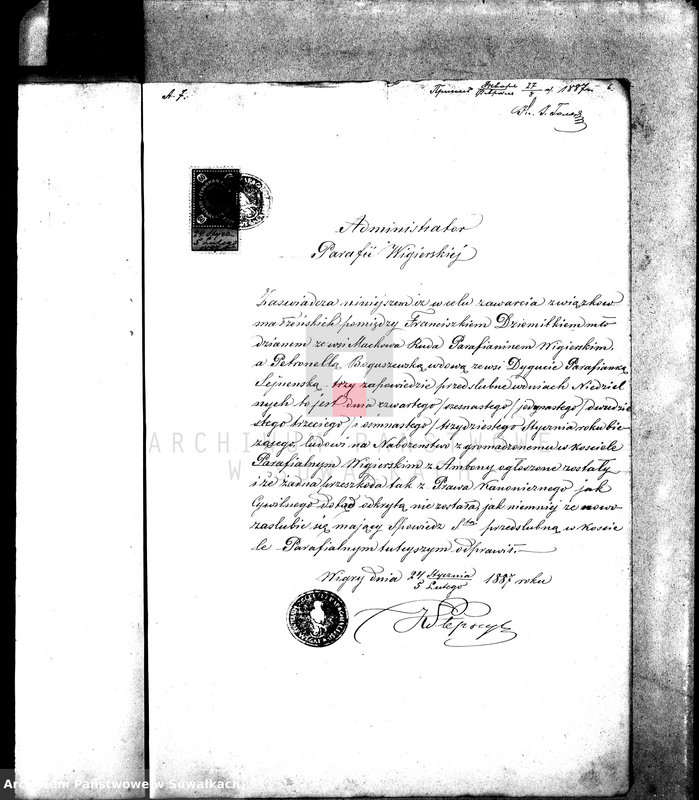 A. 7.
27
1887
Administrator
Parafii Wigierskiej
Zaświadcza niniejszem iż w celu zawarcia związków
małżeńskich pomiędzy Franciszkiem Dziemitkiem mło
dzianem ze wsi Maćkowa Ruda Parafianinem Wigierskim,
a Petronellą Boguszewską wdową ze wsi Parafianką
Sejneńską trzy zapowiedzie przedślubne w dniach Niedziel
nych to jest dnia czwartego /szesnastego/ jedynastego /dwudzie
stego trzeciego/ i ośmnastego /trzydziestego Stycznia roku bie
żącego, ludowi na Nabożeństwo zgromadzonemu w kościele
Parafialnym Wigierskim z Ambony ogłoszone zostały
i że żadna przeszkoda tak z Prawa Kanonicznego jak
Cywilnego dotąd odkrytą nie została jak niemniej że nowo
zaślubić się mający Spowiedź Stą przedślubną w koście
le Parafialnym tutejszym odprawił.
Wigry dnia 24 Stycznia / 5 Lutego 1887 roku
ARCHIWUM PAŃSTWOWE
W SUWAŁKACH
Archiwum Państwowe w Suwałkach